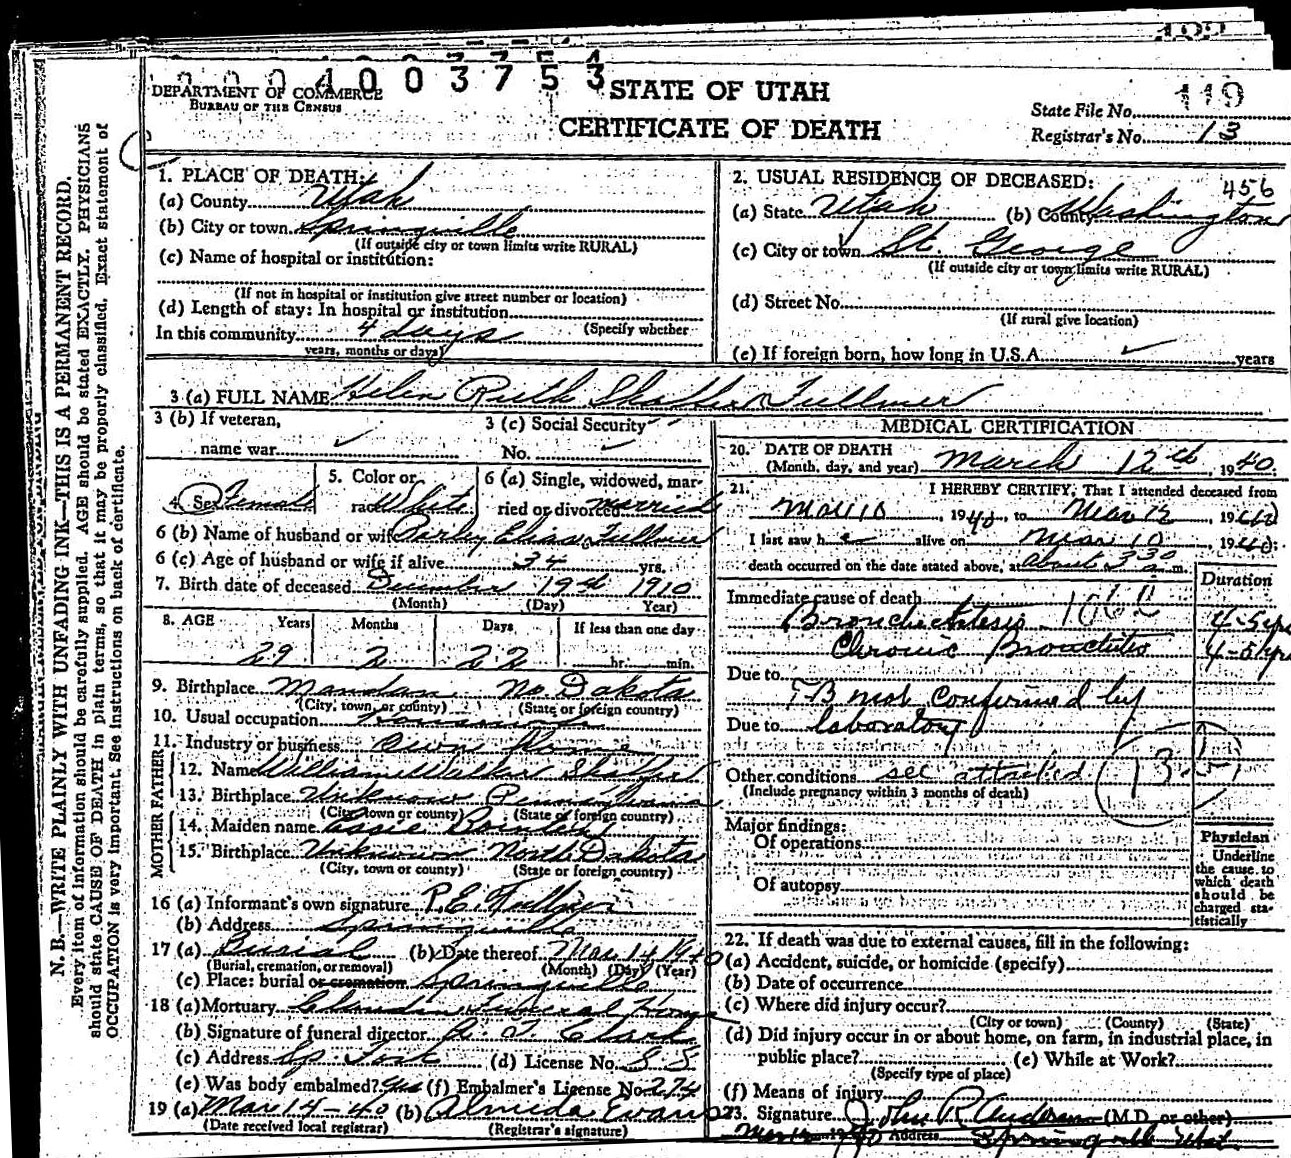 DEPARTMENT OF COMMERCE
BUREAU OF THE CENSUS
0 0 0 4 0 0 3 7 5 3
STATE OF UTAH
CERTIFICATE OF DEATH
State File No. 119
Registrar's No. 13
N. B.—WRITE PLAINLY WITH UNFADING INK—THIS IS A PERMANENT RECORD.
Every item of information should be carefully supplied. AGE should be stated EXACTLY. PHYSICIANS
should state CAUSE OF DEATH in plain terms, so that it may be properly classified. Exact statement of
OCCUPATION is very important. See instructions on back of certificate.
1. PLACE OF DEATH:
(a) County Utah
(b) City or town Springville
(If outside city or town limits write RURAL)
(c) Name of hospital or institution:
(If not in hospital or institution give street number or location)
(d) Length of stay: In hospital or institution
(Specify whether
In this community 4 days
years, months or days)
2. USUAL RESIDENCE OF DECEASED:
456
(a) State Utah (b) County Washington
(c) City or town St. George
(If outside city or town limits write RURAL)
(d) Street No.
(If rural give location)
(e) If foreign born, how long in U.S.A. years
3 (a) FULL NAME Helen Ruth Shaffer Fullmer
3 (b) If veteran,
name war
3 (c) Social Security
No.
4. Sex Female
5. Color or
race White
6 (a) Single, widowed, mar-
ried or divorced married
6 (b) Name of husband or wife Perley Elias Fullmer
6 (c) Age of husband or wife if alive 34 yrs.
7. Birth date of deceased December 19th 1910
(Month) (Day) Year)
8. AGE Years Months Days If less than one day
29 2 22 hr. min.
9. Birthplace Mandan No Dakota
(City, town, or county) (State or foreign country)
10. Usual occupation Housewife
11. Industry or business Own Home
FATHER
12. Name William Walker Shaffer
13. Birthplace Unknown Pennsylvania
(City, town or county) (State of foreign country)
MOTHER
14. Maiden name
15. Birthplace Unknown North Dakota
(City, town or county) (State or foreign country)
16 (a) Informant's own signature P.E. Fullmer
(b) Address Springville
17 (a) Burial (b) Date thereof Mar 14 1940
(Burial, cremation, or removal) (Month) (Day) (Year)
(c) Place: burial or cremation Springville
18 (a) Mortuary Claudin Funeral Home
(b) Signature of funeral director A. Y. Clark
(c) Address Sp. Fork (d) License No. 88
(e) Was body embalmed? yes (f) Embalmer's License No. 274
19 (a) Mar 14-40 (b) Almeda Evans
(Date received local registrar) (Registrar's signature)
MEDICAL CERTIFICATION
20. DATE OF DEATH
(Month, day, and year) March 12th, 1940
21. I HEREBY CERTIFY, That I attended deceased from
Mar 10, 1940, to Mar 12, 1940
I last saw her alive on Mar 10, 1940
death occurred on the date stated above, at about 3 30 a m.
Duration
Immediate cause of death 106
Bronchiectesis 4-5 yrs
Chronic Bronchitis 4-5 yrs
Due to
TB not confirmed by
Due to laboratory
Other conditions see attached
(Include pregnancy within 3 months of death)
13
Major findings:
Of operations
Of autopsy
Physician
Underline
the cause to
which death
should be
charged sta-
tistically
22. If death was due to external causes, fill in the following:
(a) Accident, suicide, or homicide (specify)
(b) Date of occurrence
(c) Where did injury occur?
(City or town) (County) (State)
(d) Did injury occur in or about home, on farm, in industrial place, in
public place? (e) While at Work?
(Specify type of place)
(f) Means of injury
23. Signature John R Anderson (M.D. or other)
Address Springville Utah